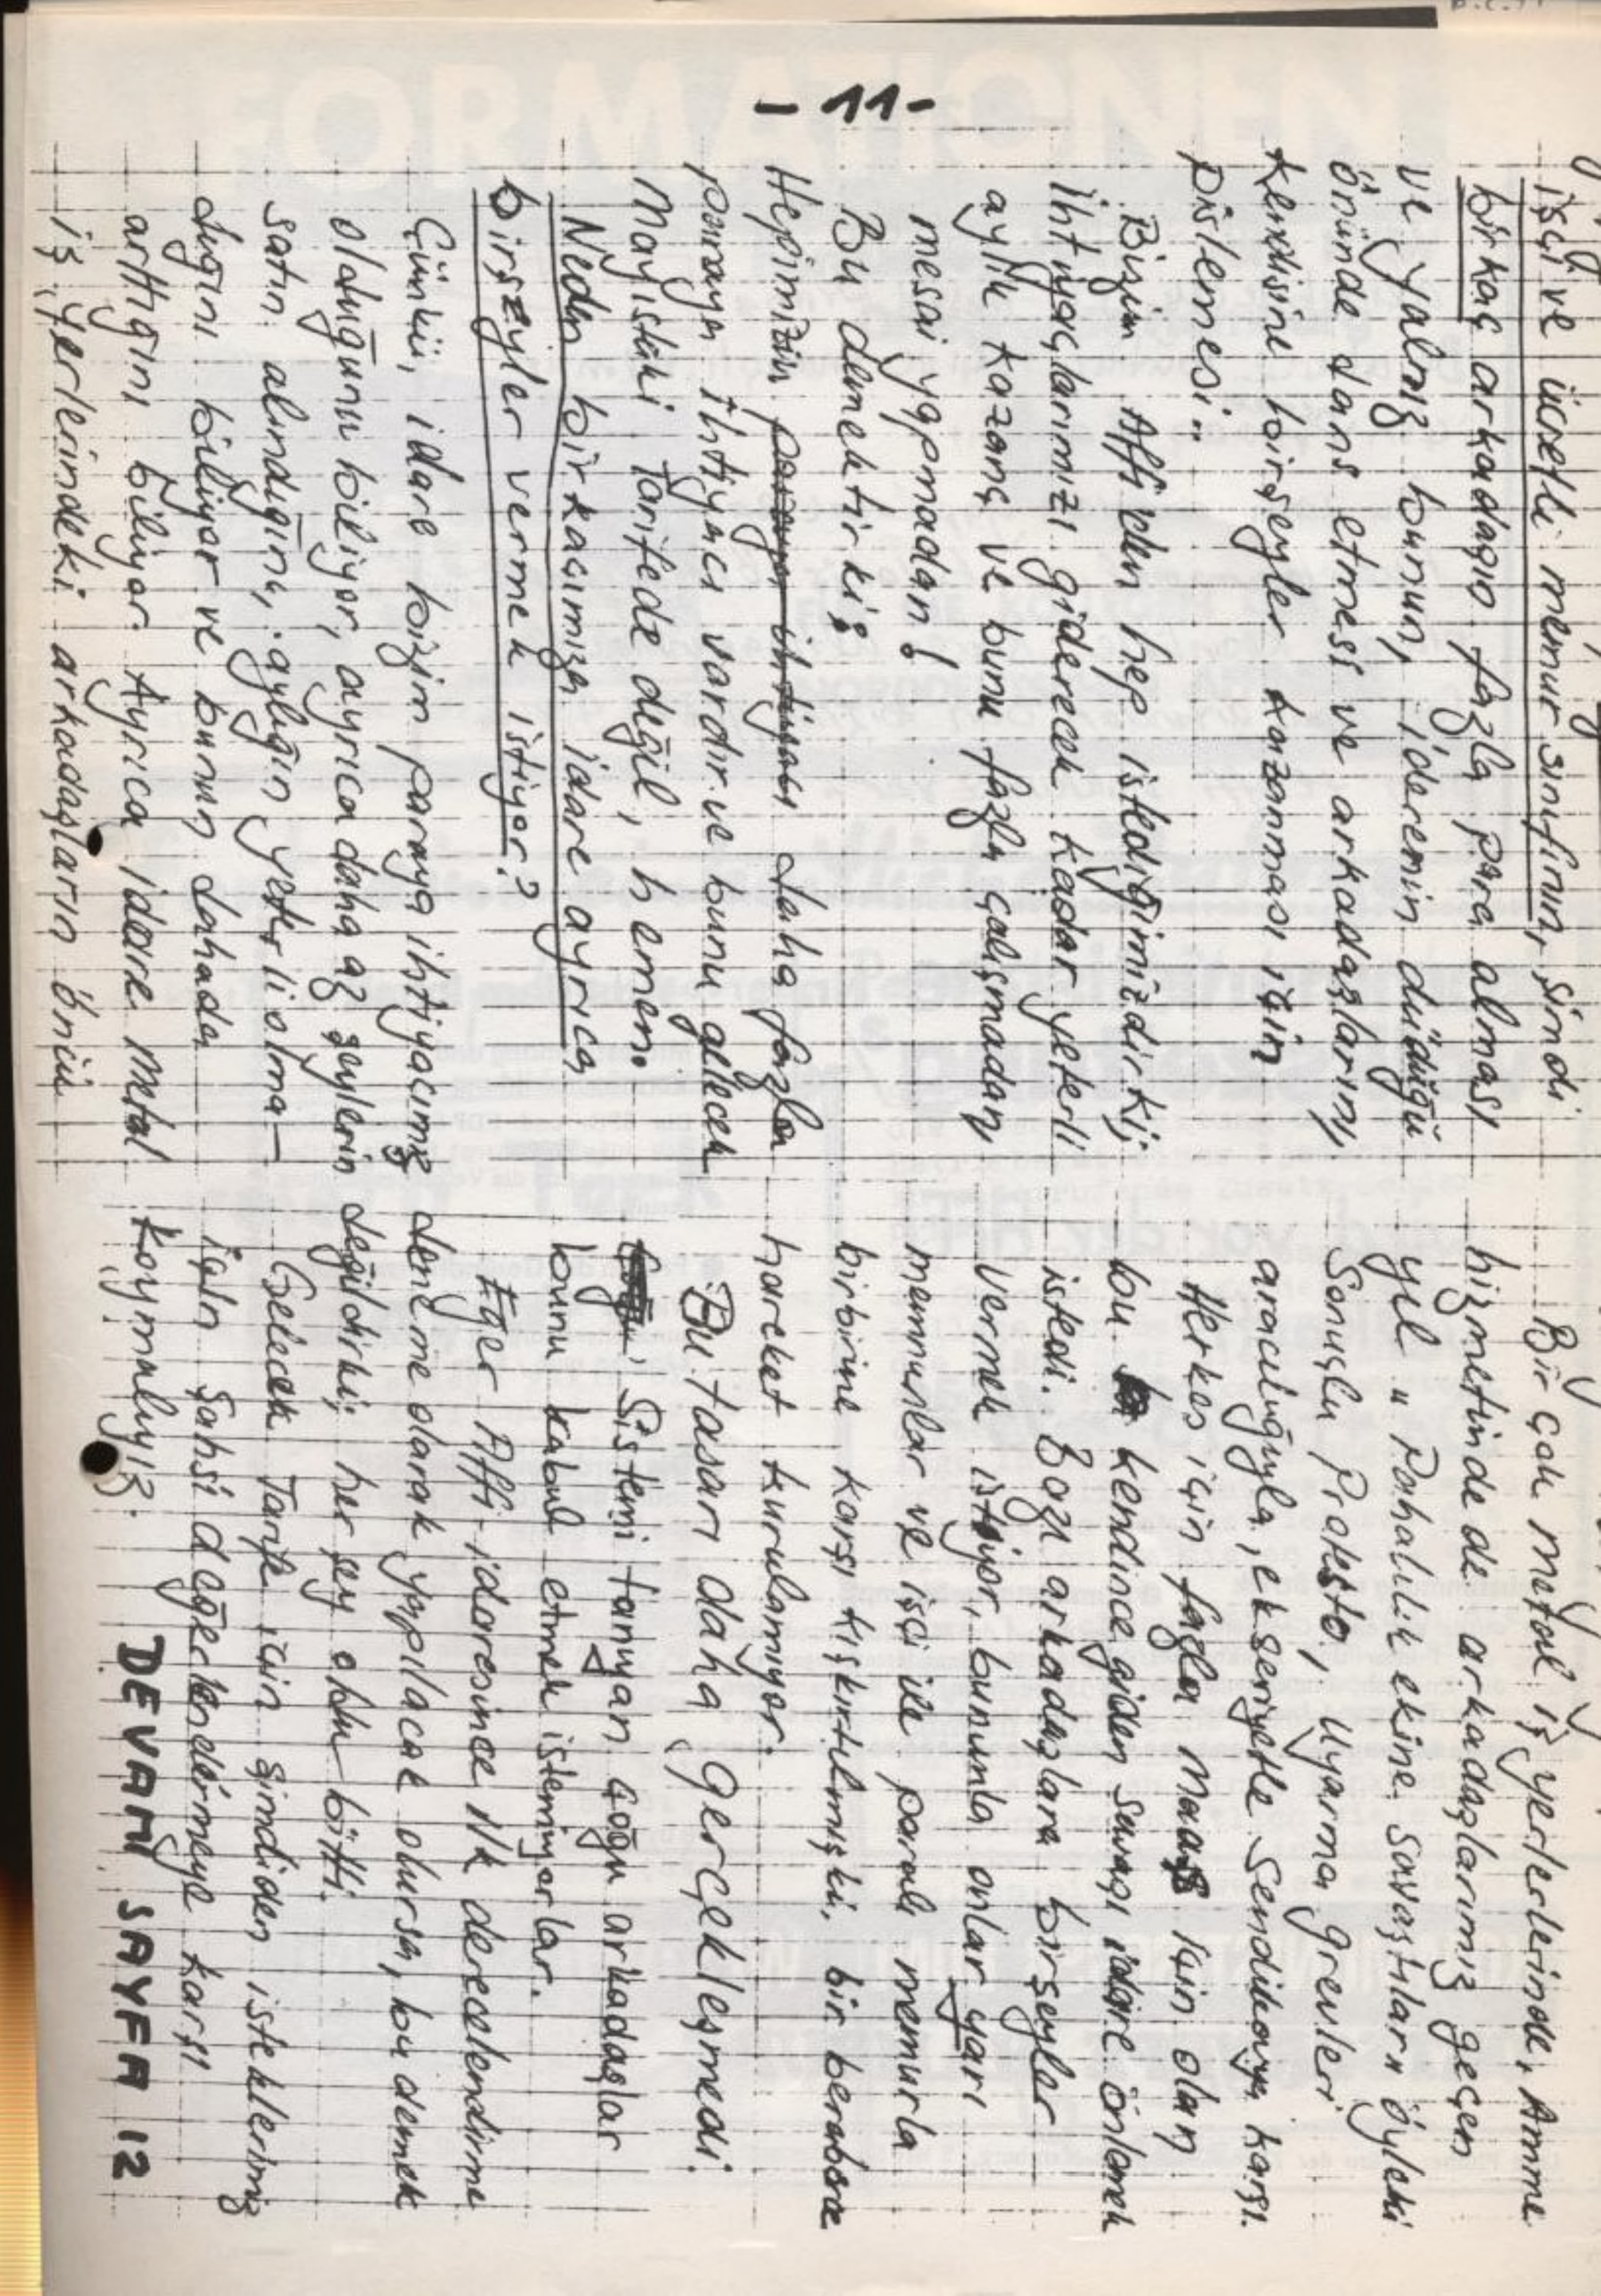 - 11 -
işçi ve ücretli memur sınıfının, şimdi
birkaç arkadaşın fazla para alması
ve yalnız bunun, iderenin düdüğü
önünde dans etmesi ve arkadaşların,
kendisine birşeyler kazanması için
pislemesi..
Bizim Affi den hep istediğimizdirki;
ihtiyaçlarımızı giderecek kadar yeterli
aylık kazanç ve bunu fazla çalışmadan,
mesai yapmadan!
Bu demektirki;
Hepimizin paraya ihtiyacı daha fazla
paraya ihtiyacı vardır ve bunu gelecek
Mayıstaki Tarifede değil, hemen.
Neden birkaçımıza idare ayrıca
birşeyler vermek istiyor?
Çünkü, idare bizim paraya ihtiyacımız
olduğunu biliyor, ayrıca daha az şeylerin
satın alındığını, aylığın yeterli olma-
dığını biliyor ve bunun dahada
arttığını biliyor. Ayrıca idare Metal
iş yerlerindeki arkadaşların önü
Bir çok metal iş yerlerlerinde, Amme
hizmetinde de arkadaşlarımız geçen
yıl "Pahalılık ekine savaştılar" öyleki
Sonuçlu Protesto, Uyarma grevleri
aracılığıyla, ekseriyetle Sendikaya karşı.
Herkes için fazla Maaş için olan
bu kendince giden savaşı idare önlemek
istedi. Bazı arkadaşlara birşeyler
vermek istiyor, bununla onlar yarı
memurlar ve işçi ile paralı memurla
birbirine karşı kışkırtılmışki, bir berabere
hareket kurulamıyor.
Bu tasarı daha Gerçekleşmedi.
Sistemi tanıyan çoğu arkadaşlar
bunu kabul etmek istemiyorlar.
Eğer Affi-idaresince ilk derecelendirme
deneme olarak yapılacak olursa, bu demek
değildirki; her şey oldu bitti.
Gelecek Tarife için şimdiden isteklerimiz
için şahsi değerlendirmeye karşı
koymalıyız.
DEVAMI SAYFA 12